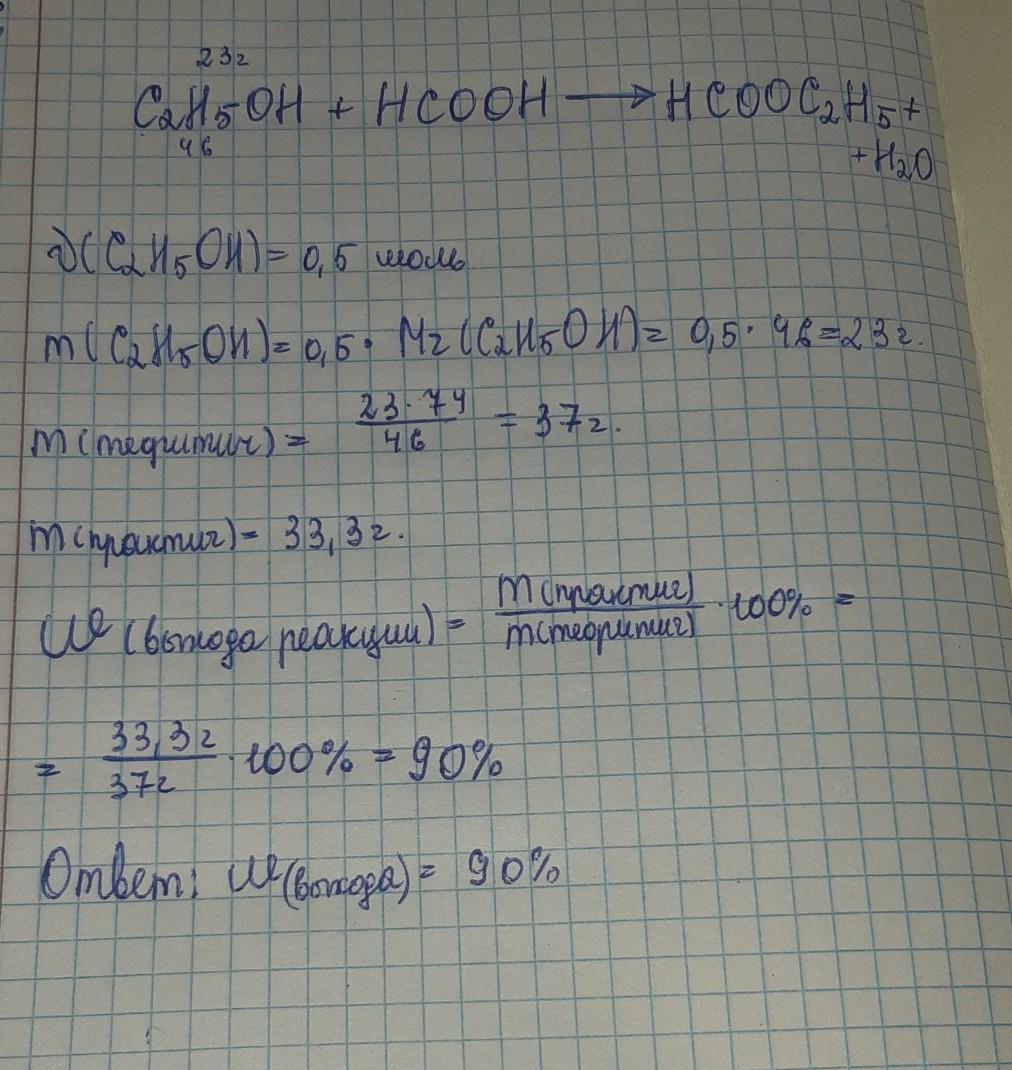 23г
C₂H₅OH + HCOOH ⟶ HCOOC₂H₅ +
46
+ H₂O
ν(C₂H₅OH) = 0,5 моль
m(C₂H₅OH) = 0,5 · Mг(C₂H₅OH) = 0,5 · 46 = 23г.
m(теоритич) = 23·74/46 = 37г.
m(практич) = 33,3г.
W (выхода реакции) = m(практич)/m(теоритич) · 100% =
= 33,3г/37г · 100% = 90%
Ответ: W(выхода) = 90%